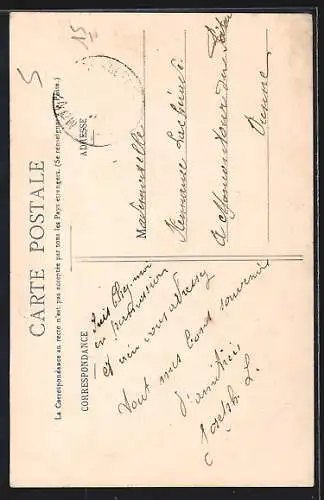 15
5
CARTE POSTALE
La Correspondance au recto n'est pas acceptée par tous les Pays étrangers. (Se renseigner à la Poste.)
CORRESPONDANCE
ADRESSE
Suis chez moi
en permission
et vien vous adresser
tout mes bons souvenir
d'amitiés
Joseph L.
Mademoiselle
à Monconteur du Poitou
Vienne